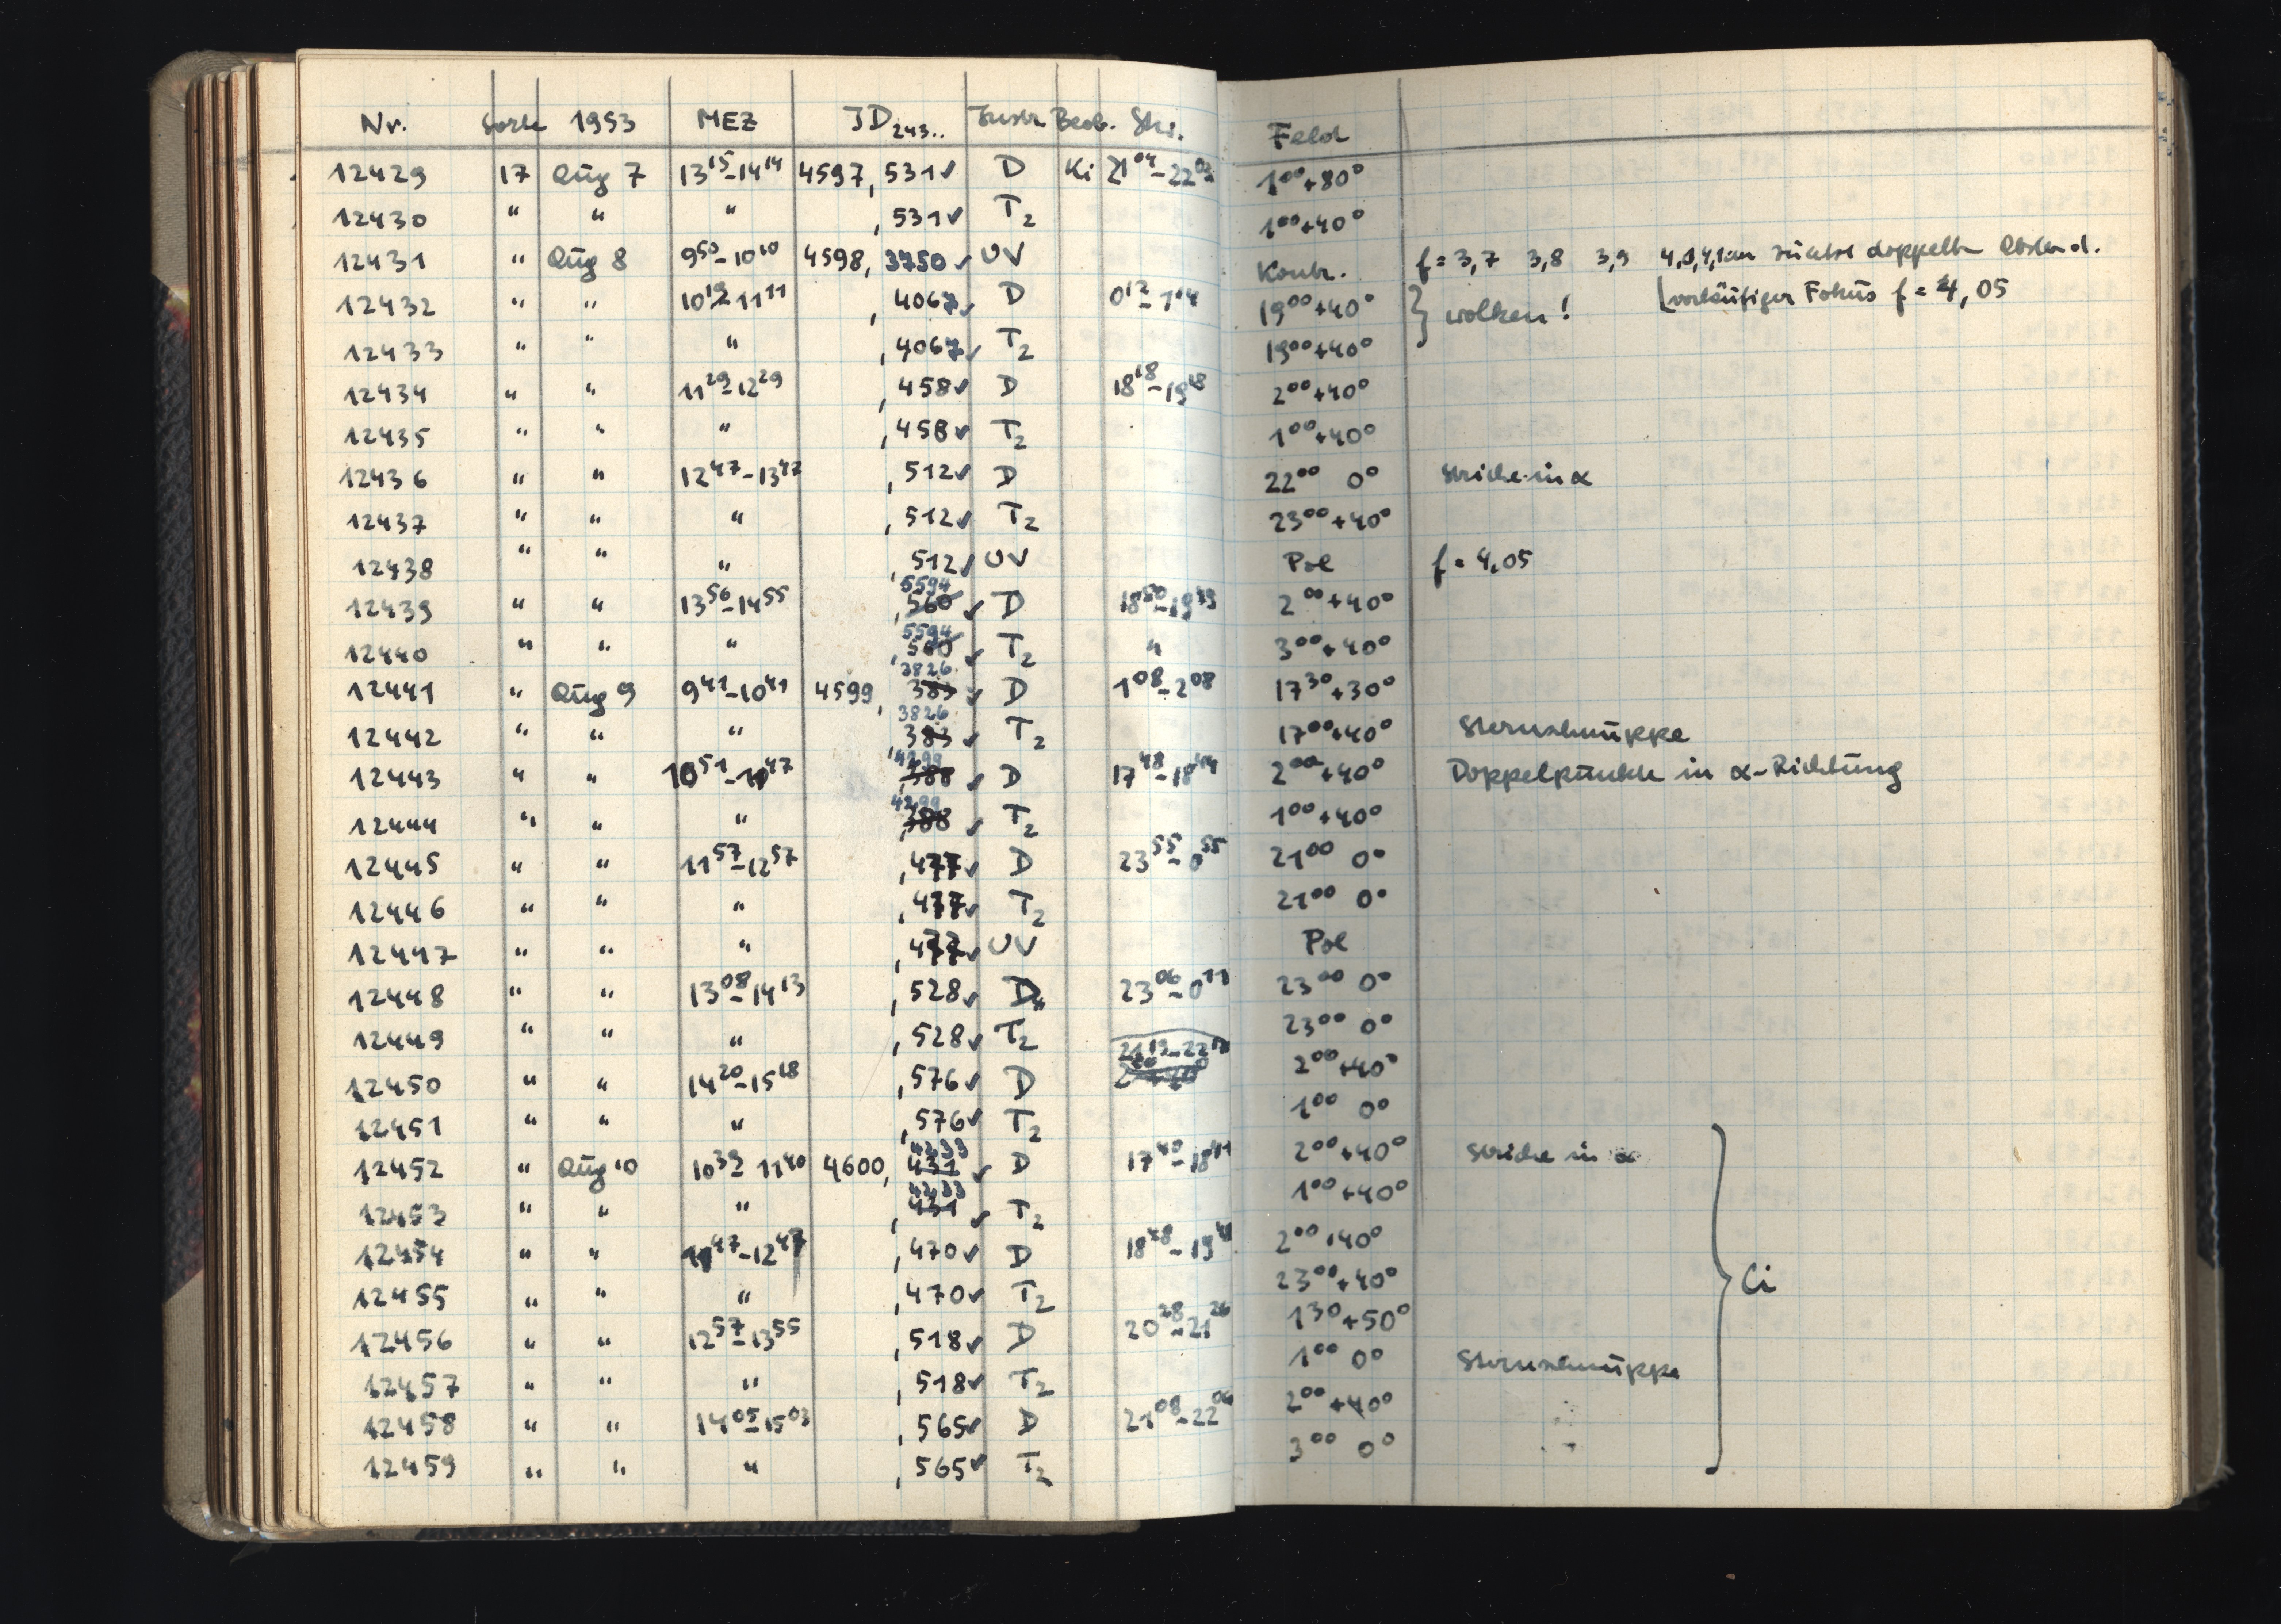 Nr. Sorte 1953 MEZ JD243.. Instr. Beob. Stw. Feld
12429 17 Aug 7 13¹⁵-14¹⁴ 4597,531✓ D Ki 21⁰⁴-22⁰³ 1⁰⁰+80°
12430 " " " ,531✓ T₂ 1⁰⁰+40°
12431 " Aug 8 9⁵⁰-10¹⁰ 4598,3750✓ UV Kontr. f=3,7 3,8 3,9 4,0 4,1 doppelter Abstand.
12432 " " 10¹⁹-11¹¹ ,4067✓ D 0¹²-1⁰⁴ 19⁰⁰+40° } Wolken! vorläufiger Fokus f=4,05
12433 " " " ,4067✓ T₂ 19⁰⁰+40°
12434 " " 11²⁹-12²⁹ ,458✓ D 18¹⁸-19¹⁸ 2⁰⁰+40°
12435 " " " ,458✓ T₂ 1⁰⁰+40°
12436 " " 12⁴⁷-13⁴⁷ ,512✓ D 22⁰⁰ 0° Striche in α
12437 " " " ,512✓ T₂ 23⁰⁰+40°
12438 " " " ,512✓ UV Pol f=4,05
12439 " " 13⁵⁶-14⁵⁵ ,560 5594✓ D 18⁵⁰-19⁴⁹ 2⁰⁰+40°
12440 " " " ,560 5594✓ T₂ " 3⁰⁰+40°
12441 " Aug 9 9⁴¹-10⁴¹ 4599,383 3826✓ D 1⁰⁸-2⁰⁸ 17³⁰+30°
12442 " " " ,383 3826✓ T₂ 17⁰⁰+40° Sternschnuppe
12443 " " 10⁵¹-11⁴⁷ ,388 4299✓ D 17⁴⁸-18⁴⁴ 2⁰⁰+40° Doppelpunkte in α-Richtung
12444 " " " ,388 4299✓ T₂ 1⁰⁰+40°
12445 " " 11⁵⁷-12⁵⁷ ,477✓ D 23⁵⁵-0⁵⁵ 21⁰⁰ 0°
12446 " " " ,477✓ T₂ 21⁰⁰ 0°
12447 " " " ,477✓ UV Pol
12448 " " 13⁰⁸-14¹³ ,528✓ D 23⁰⁶-0¹¹ 23⁰⁰ 0°
12449 " " " ,528✓ T₂ 23⁰⁰ 0°
12450 " " 14²⁰-15¹⁸ ,576✓ D 21¹³-22¹² 2⁰⁰+40°
12451 " " " ,576✓ T₂ 1⁰⁰ 0°
12452 " Aug 10 10³⁹-11⁴⁰ 4600,431 4233✓ D 17⁴⁰-18⁴¹ 2⁰⁰+40° Striche in α
12453 " " " ,431 4233✓ T₂ 1⁰⁰+40°
12454 " " 11⁴⁷-12⁴⁷ ,470✓ D 18⁴⁸-19⁴⁸ 2⁰⁰+40°
12455 " " " ,470✓ T₂ 23⁰⁰+40° } Ci
12456 " " 12⁵⁷-13⁵⁵ ,518✓ D 20²⁸-21²⁶ 1³⁰+50°
12457 " " " ,518✓ T₂ 1⁰⁰ 0° Sternschnuppe
12458 " " 14⁰⁵-15⁰³ ,565✓ D 21⁰⁸-22⁰⁶ 2⁰⁰+40°
12459 " " " ,565✓ T₂ 3⁰⁰ 0°